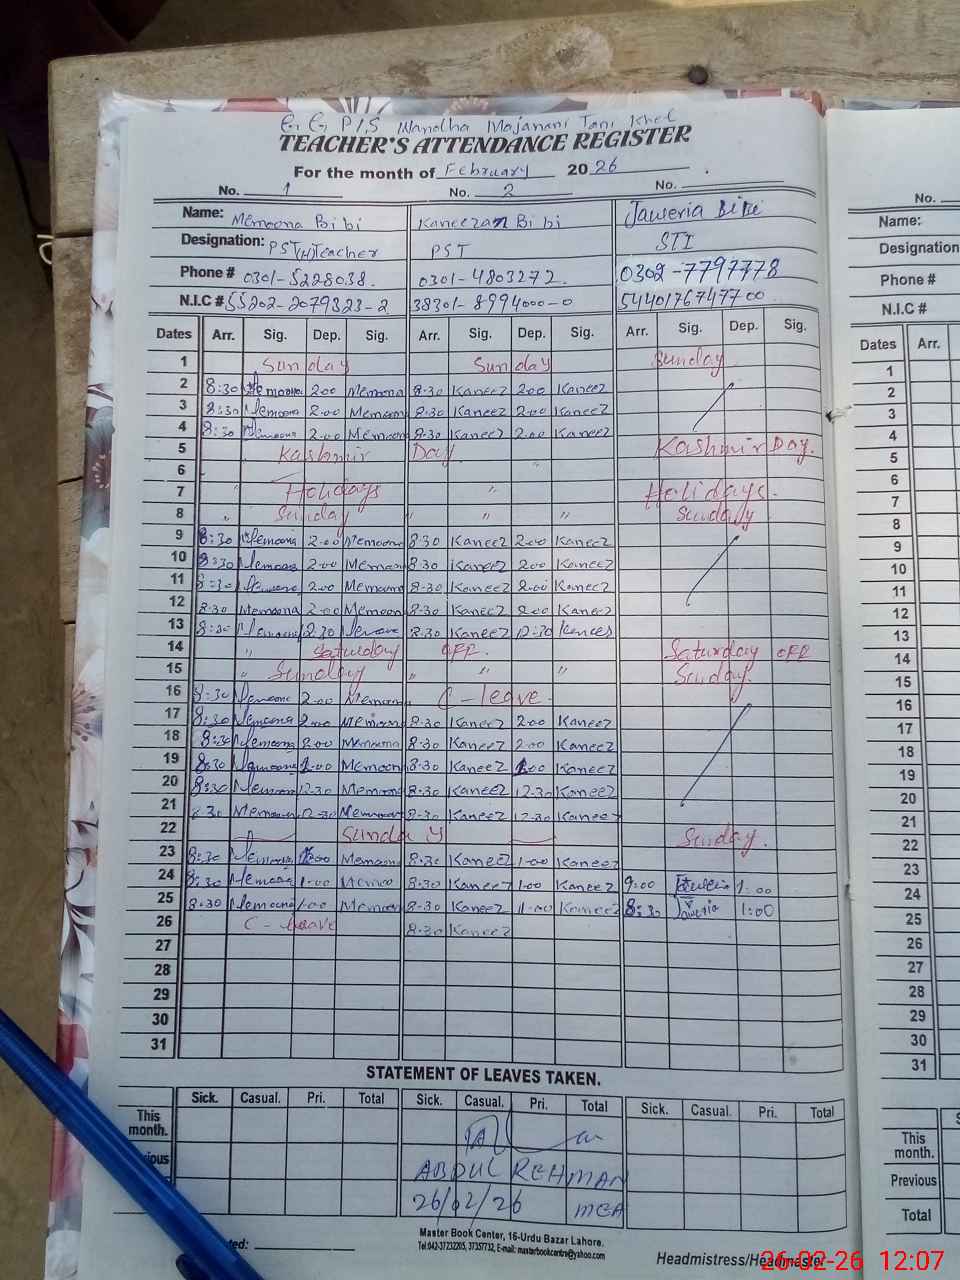 G. G. P/S Wandha Majanani Tani Khel
TEACHER'S ATTENDANCE REGISTER
For the month of February 2026
No. 1 No. 2 No.
Name: Memoona Bibi Kaneezan Bibi Jaweria Bibi
Designation: PST(H)Teacher PST STI
Phone # 0301-5228038. 0301-4803272. 0302-7797778
N.I.C # 55202-2079323-2 38301-8994000-0 5440176747700
Dates Arr. Sig. Dep. Sig. Arr. Sig. Dep. Sig. Arr. Sig. Dep. Sig.
1 Sunday Sunday Sunday
2 8:30 Memoona 2:00 Memoona 8:30 Kaneez 2:00 Kaneez
3 8:30 Memoona 2:00 Memoona 8:30 Kaneez 2:00 Kaneez
4 8:30 Memoona 2:00 Memoona 8:30 Kaneez 2:00 Kaneez
5 Kashmir Day Kashmir Day.
6
7 Holidays " Holidays.
8 " Sunday " " " Sunday
9 8:30 Memoona 2:00 Memoona 8:30 Kaneez 2:00 Kaneez
10 8:30 Memoona 2:00 Memoona 8:30 Kaneez 2:00 Kaneez
11 8:30 Memoona 2:00 Memoona 8:30 Kaneez 2:00 Kaneez
12 8:30 Memoona 2:00 Memoona 8:30 Kaneez 2:00 Kaneez
13 8:30 Memoona 12:30 Memoona 8:30 Kaneez 12:30 Kaneez
14 " Saturday OFF. Saturday OFF
15 " Sunday " " " Sunday.
16 8:30 Memoona 2:00 Memoona C-leave.
17 8:30 Memoona 2:00 Memoona 8:30 Kaneez 2:00 Kaneez
18 8:30 Memoona 2:00 Memoona 8:30 Kaneez 2:00 Kaneez
19 8:30 Memoona 1:00 Memoona 8:30 Kaneez 1:00 Kaneez
20 8:30 Memoona 12:30 Memoona 8:30 Kaneez 12:30 Kaneez
21 8:30 Memoona 12:30 Memoona 8:30 Kaneez 12:30 Kaneez
22 Sunday Sunday.
23 8:30 Memoona 1:00 Memoona 8:30 Kaneez 1:00 Kaneez
24 8:30 Memoona 1:00 Memoona 8:30 Kaneez 1:00 Kaneez 9:00 Jaweria 1:00
25 8:30 Memoona 1:00 Memoona 8:30 Kaneez 1:00 Kaneez 8:30 Jaweria 1:00
26 C-leave 8:30 Kaneez
27
28
29
30
31
STATEMENT OF LEAVES TAKEN.
Sick. Casual. Pri. Total Sick. Casual. Pri. Total Sick. Casual. Pri. Total
This month.
ABDUL REHMAN
26/02/26 MEA
Master Book Center, 16-Urdu Bazar Lahore.
Tel:042-37232205, 37357732, E-mail: masterbookcentre@yahoo.com
Headmistress/Headmaster
No.
Name:
Designation
Phone #
N.I.C #
Dates Arr.
1
2
3
4
5
6
7
8
9
10
11
12
13
14
15
16
17
18
19
20
21
22
23
24
25
26
27
28
29
30
31
This month.
Previous
Total
26-02-26 12:07